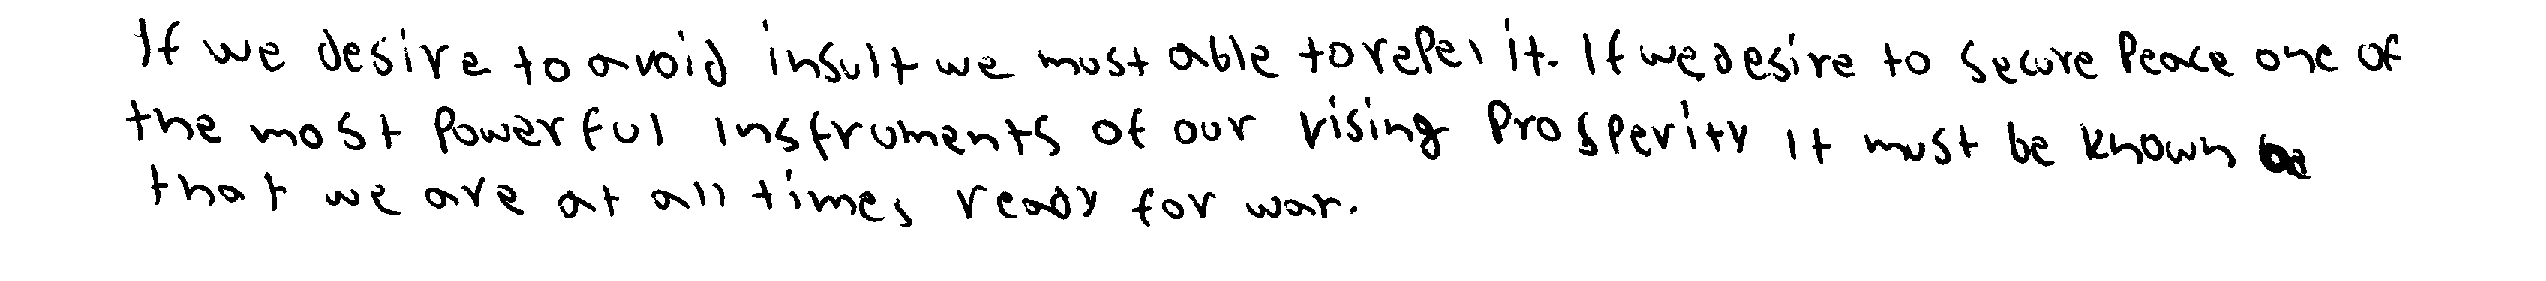 If we desire to avoid insult we must able to repel it. If we desire to secure Peace one of
the most Powerful instruments of our rising Prosperity it must be known
that we are at all times ready for war.